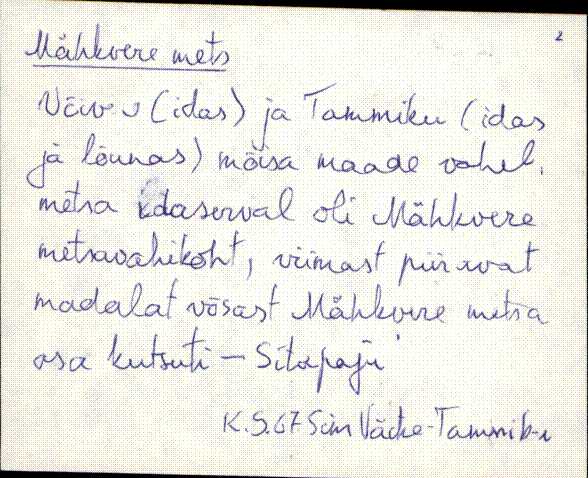 2
Mähkvere mets
(idas) ja Tammiku (idas
ja lõunas) mõisa maade vahel.
metsa idaserval oli Mähkvere
metsavahikoht, viimast piiravat
madalat võsast Mähkvere metsa
osa kutsuti — Sitapaju
K.S. 67 Sim Väike-Tammik-u